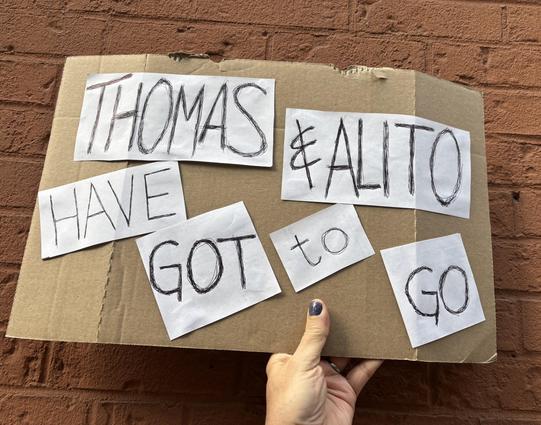 THOMAS
& ALITO
HAVE
GOT
to
GO